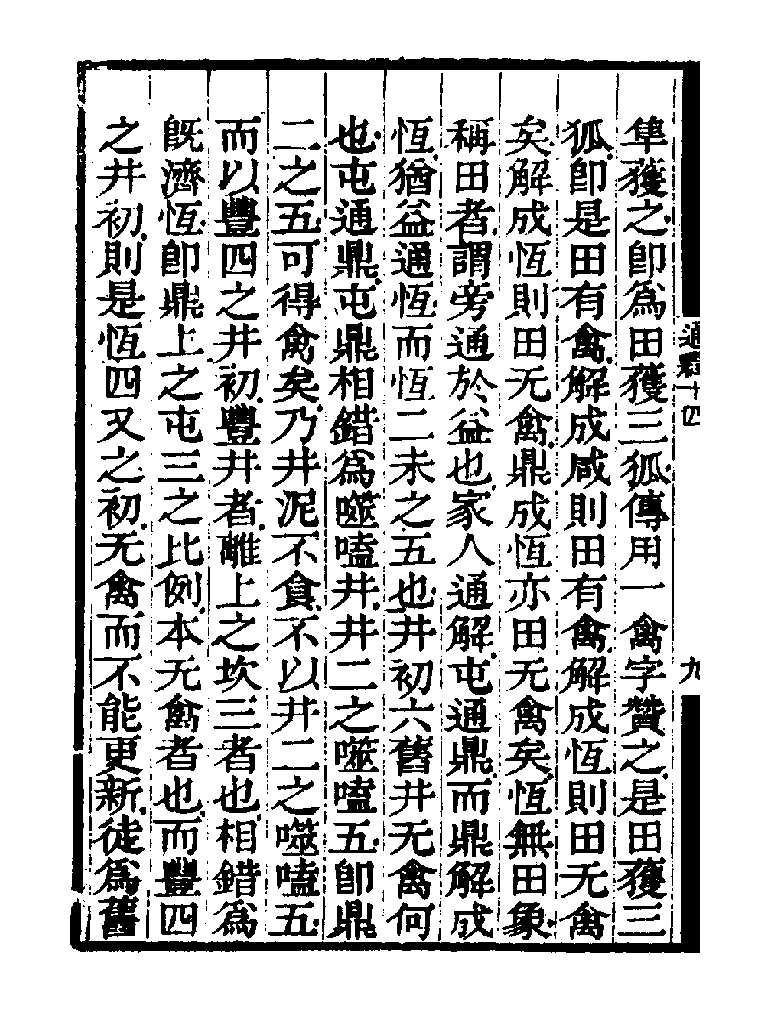 隼獲之卽爲田獲三狐傳用一禽字贊之是田獲三
狐卽是田有禽解成咸則田有禽解成恆則田无禽
矣解成恆則田无禽鼎成恆亦田无禽矣恆無田象
稱田者謂旁通於益也家人通解屯通鼎而鼎解成
恆猶益通恆而恆二未之五也井初六舊井无禽何
也屯通鼎屯鼎相錯爲噬嗑井井二之噬嗑五卽鼎
二之五可得禽矣乃井泥不食不以井二之噬嗑五
而以豐四之井初豐井者離上之坎三者也相錯爲
旣濟恆卽鼎上之屯三之比例本无禽者也而豐四
之井初則是恆四又之初无禽而不能更新徒爲舊
通釋十四
九